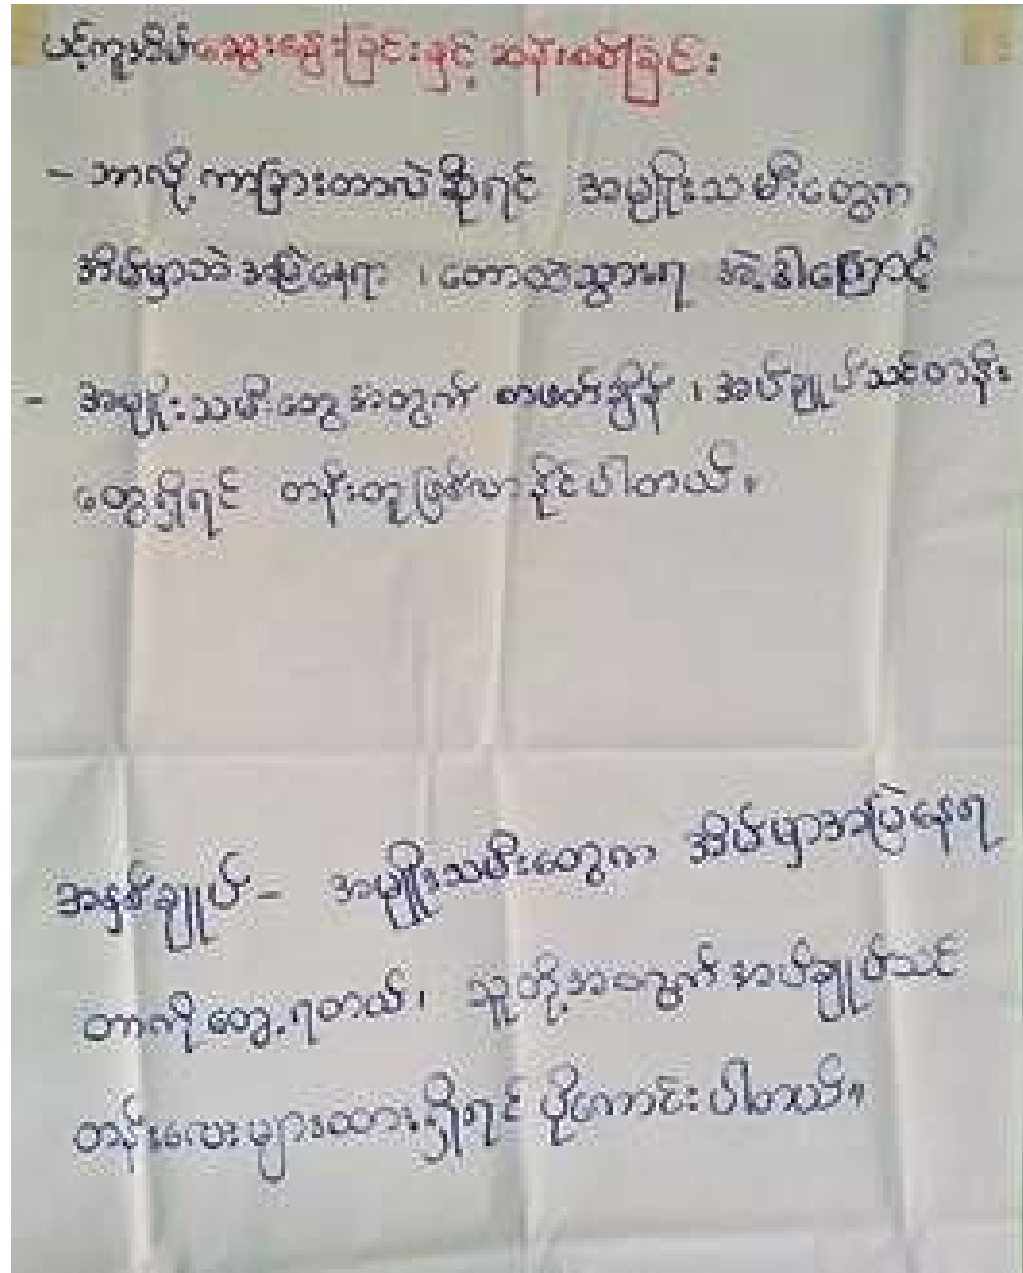 ဆွေးနွေးခြင်းနှင့် ဆန်းစစ်ခြင်း
- ဘာလို့ကာခြားတာလဲဆိုရင် အမျိုးသမီးတွေက
အိမ်မှာဘဲအမြဲနေရာ ၊ တောထဲသွားရ အဲ့ဒါကြောင့်
- အမျိုးသမီးတွေအတွက် စာဖတ်ချိန် ၊ အပ်ချုပ်သင်တန်း
တွေရှိရင် တန်းတူဖြစ်လာနိုင်ပါတယ်။
အနှစ်ချုပ် - အမျိုးသမီးတွေက အိမ်မှာအမြဲနေရ
တာကိုတွေ့ရတယ်၊ သူတို့အတွက်အပ်ချုပ်သင်
တန်းလေးများထားရှိရင် ပိုကောင်းပါတယ်။